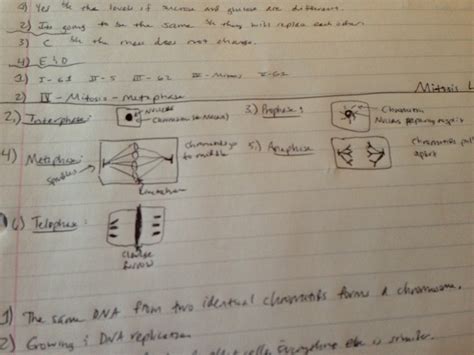 a) Yes b/c the levels of sucrose and glucose are different.
2) Its going to be the same b/c they will replace each other
3) C b/c the mass does not change.
4) E & D
1) I-G1 II-S III-G2 IV-Mitosis V-G1
2) IV-Mitosis-Metaphase
Mitosis L
2.) Interphase: Nucleus
Chromatin (in Nucleus)
3.) Prophase: Chromatin
Nucleus
4) Metaphase: Chromatids go
to middle
spindles
5) Anaphase: Chromatids pull
apart
6) Telophase:
Cleavage
furrow
1) The same DNA from two identical chromatids forms a chromosome.
2) Growing & DNA replication.
cells. Everything else is similar.